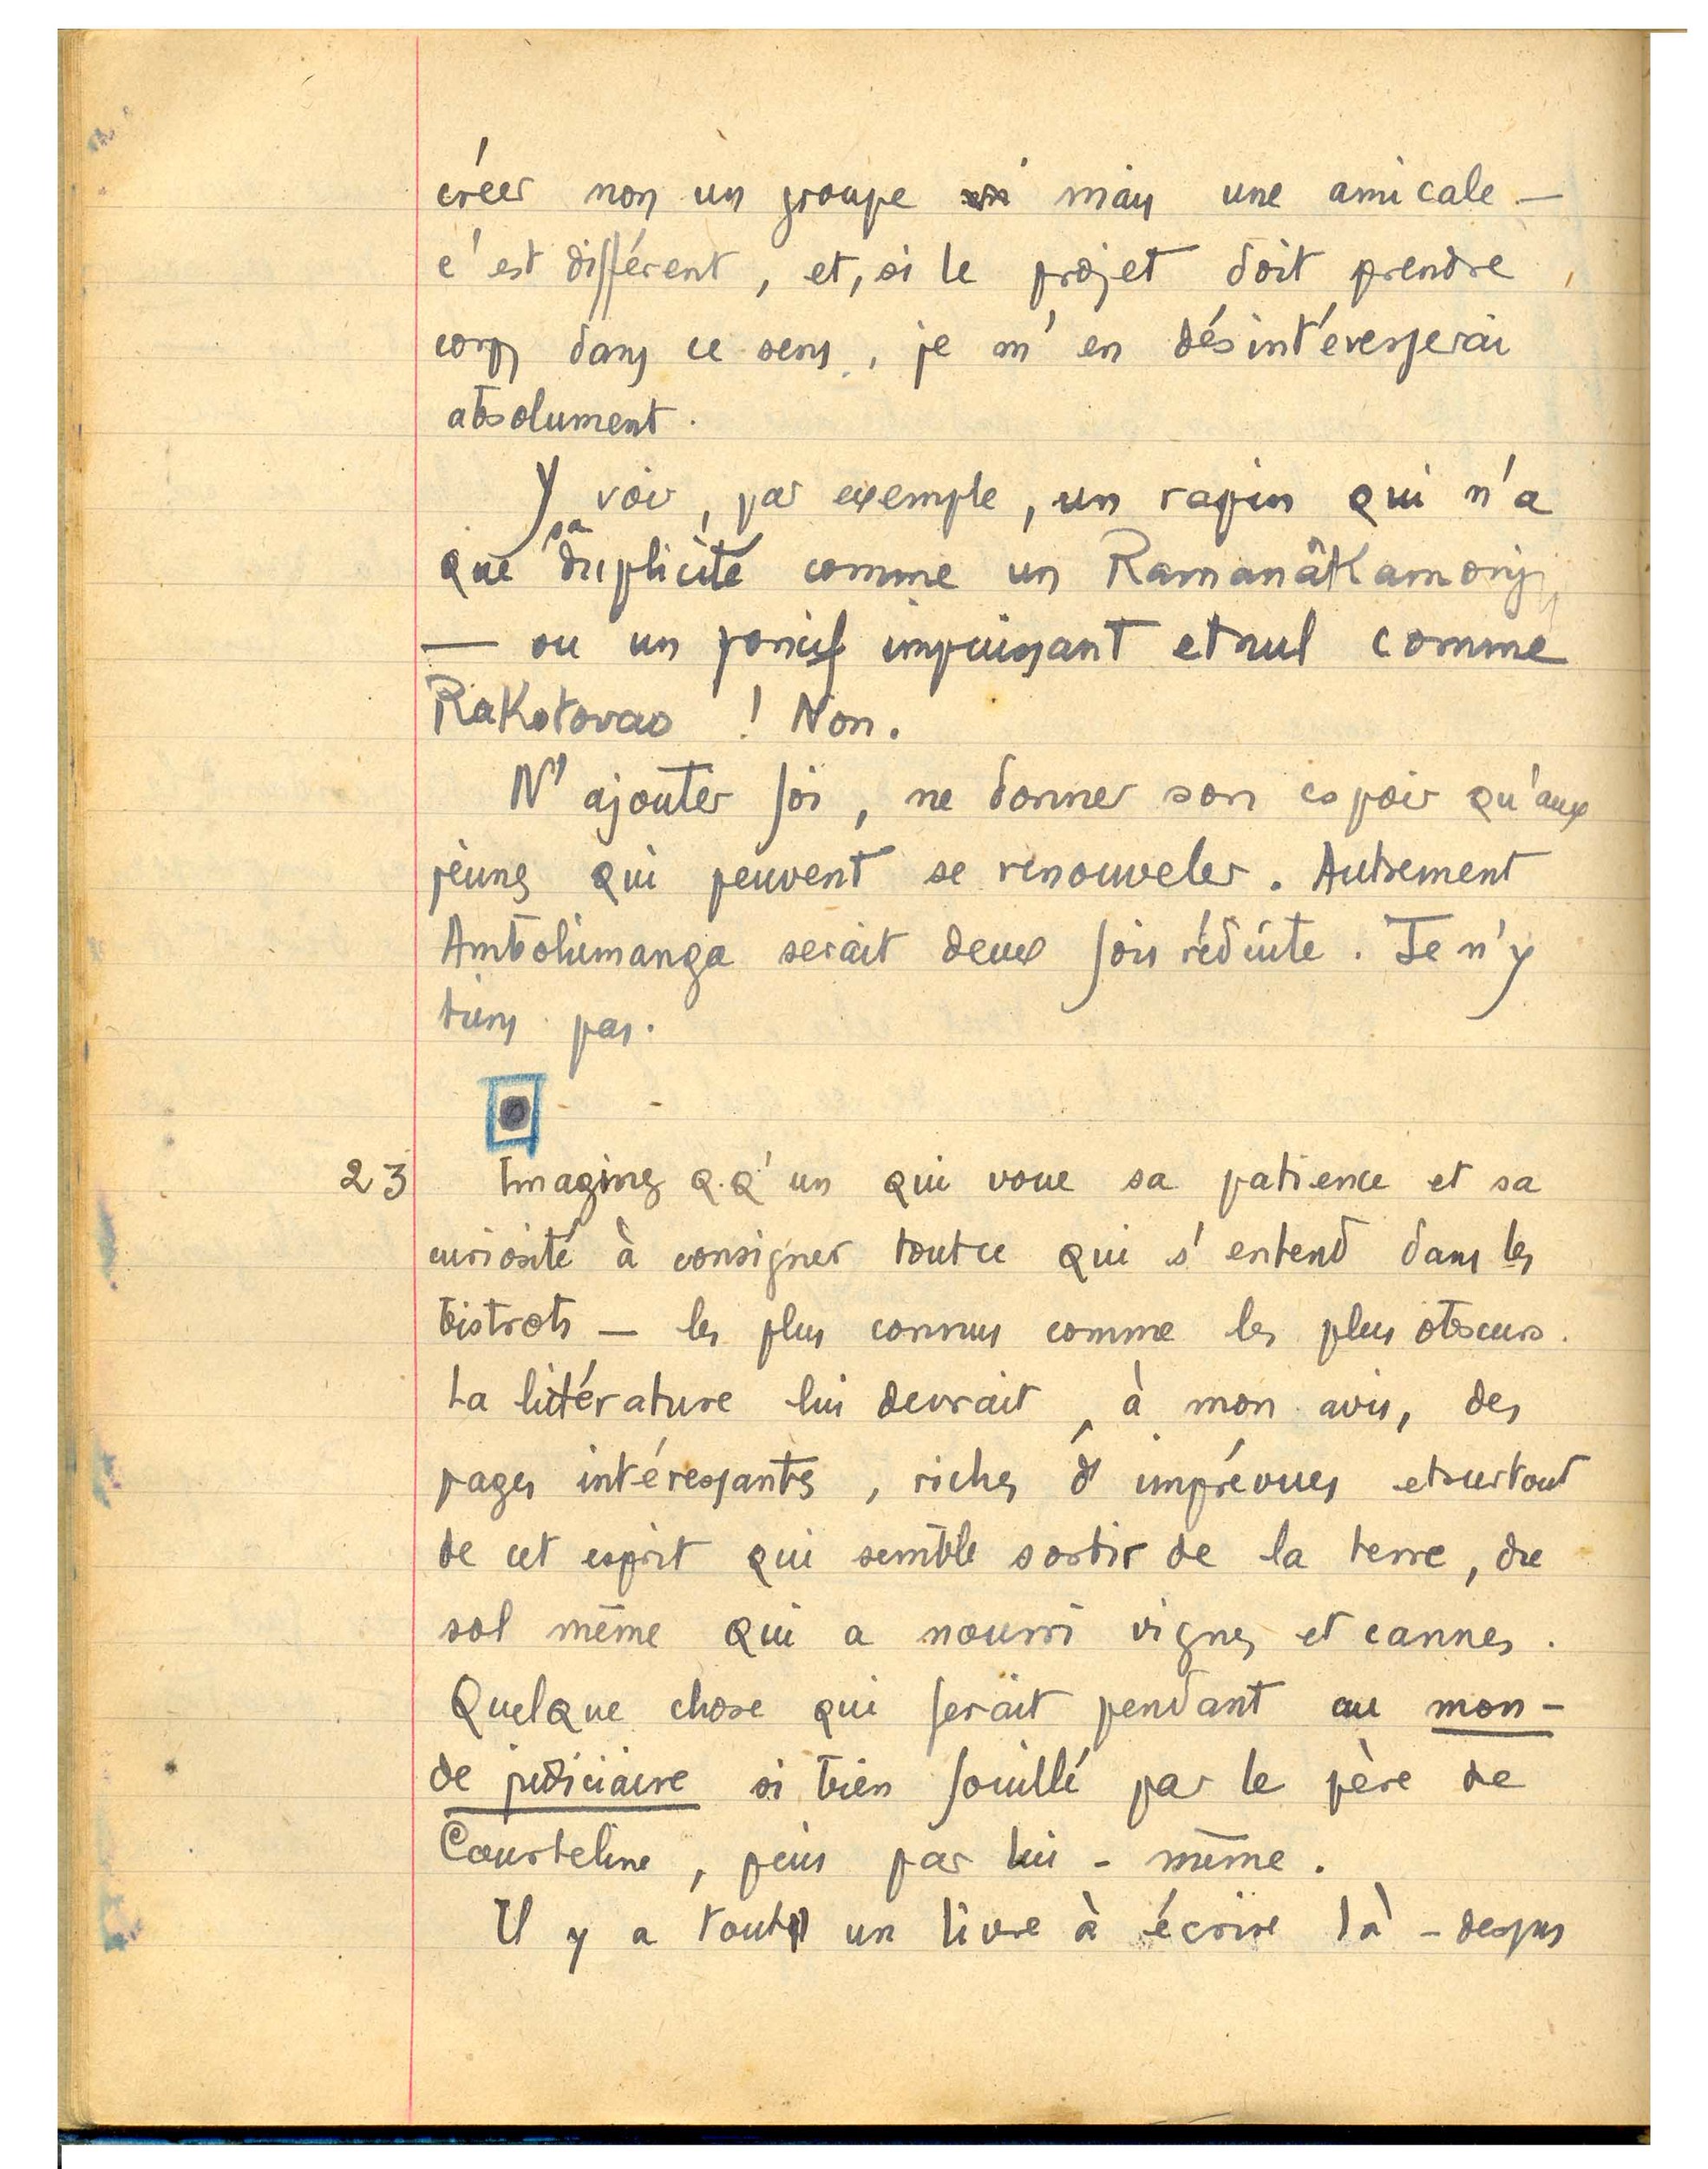 créer non un groupe mais une amicale —
c'est différent, et, si le projet doit prendre
corps dans ce sens, je m'en désintéresserai
absolument.
Y voir, par exemple, un rapin qui n'a
que sa duplicité comme un Ramanâkamonj
— ou un poncif impuissant et nul comme
Rakotovao ! Non.
N'ajouter foi, ne donner son espoir qu'aux
jeunes qui peuvent se renouveler. Autrement
Ambohimanga serait deux fois réduite. Je n'y
tiens pas.
23 Imaginez q.q'un qui voue sa patience et sa
curiosité à consigner tout ce qui s'entend dans les
bistrots — les plus connus comme les plus obscurs.
La littérature lui devrait, à mon avis, des
pages intéressantes, riches d'imprévues et surtout
de cet esprit qui semble sortir de la terre, du
sol même qui a nourri vignes et cannes.
Quelque chose qui ferait pendant au mon-
de judiciaire si bien fouillé par le père de
Courteline, puis par lui-même.
Il y a tout un livre à écrire là-dessus